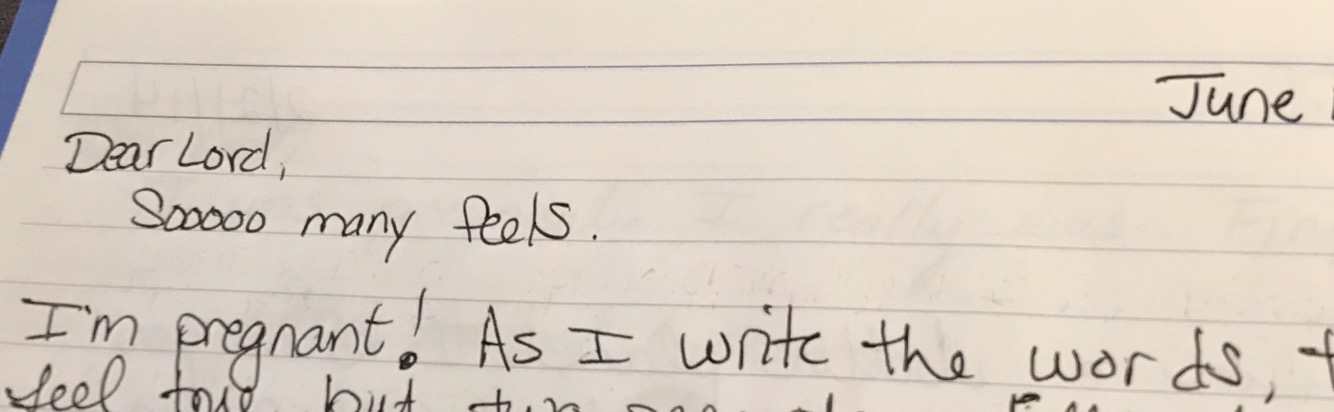 June
Dear Lord,
Sooooo many feels.
I'm pregnant! As I write the words, t
feel true but